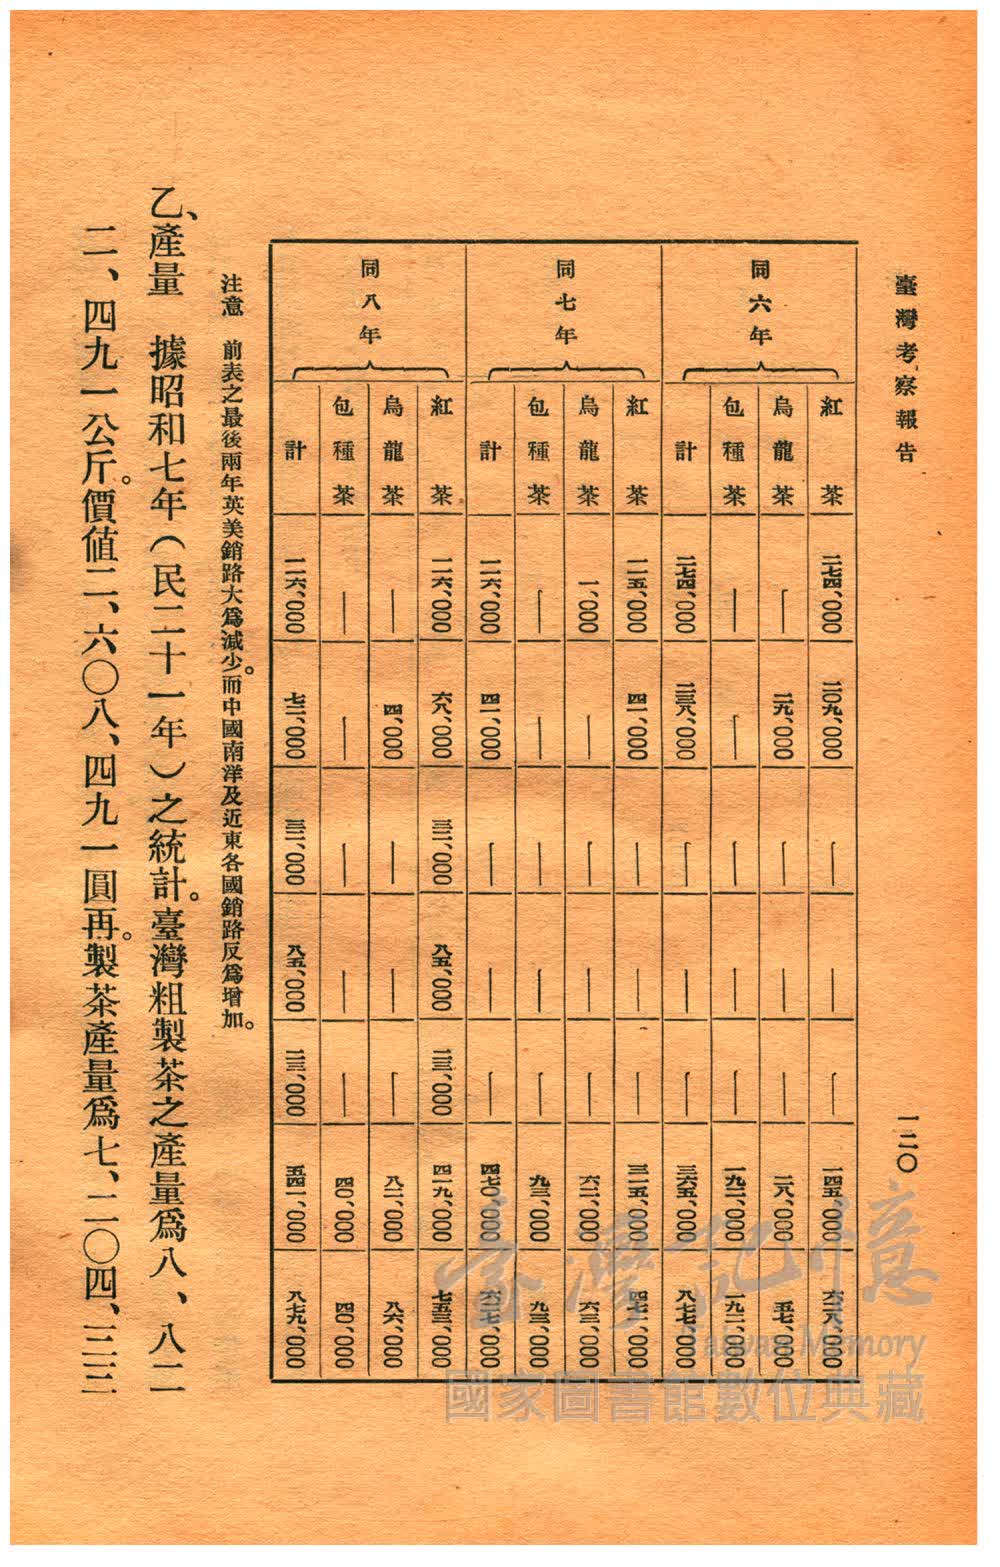 臺灣考察報告
一二〇
同六年
紅茶 二七四、〇〇〇 二〇九、〇〇〇 ー ー ー 一四五、〇〇〇 六二八、〇〇〇
烏龍茶 ー 二九、〇〇〇 ー ー ー 二八、〇〇〇 五七、〇〇〇
包種茶 ー ー ー ー ー 一九二、〇〇〇 一九二、〇〇〇
計 二七四、〇〇〇 二三八、〇〇〇 ー ー ー 三六五、〇〇〇 八七七、〇〇〇
同七年
紅茶 一一五、〇〇〇 四一、〇〇〇 ー ー ー 三一五、〇〇〇 四七一、〇〇〇
烏龍茶 一、〇〇〇 ー ー ー ー 六二、〇〇〇 六三、〇〇〇
包種茶 ー ー ー ー ー 九三、〇〇〇 九三、〇〇〇
計 一一六、〇〇〇 四一、〇〇〇 ー ー ー 四七〇、〇〇〇 六二七、〇〇〇
同八年
紅茶 一二六、〇〇〇 六八、〇〇〇 三二、〇〇〇 八五、〇〇〇 二三、〇〇〇 四一九、〇〇〇 七五三、〇〇〇
烏龍茶 ー 四、〇〇〇 ー ー ー 八二、〇〇〇 八六、〇〇〇
包種茶 ー ー ー ー ー 四〇、〇〇〇 四〇、〇〇〇
計 一二六、〇〇〇 七二、〇〇〇 三二、〇〇〇 八五、〇〇〇 二三、〇〇〇 五四一、〇〇〇 八七九、〇〇〇
注意 前表之最後兩年英美銷路大爲減少。而中國南洋及近東各國銷路反爲增加。
乙、產量 據昭和七年（民二十一年）之統計。臺灣粗製茶之產量爲八、八二
二、四九一公斤。價值二、六〇八、四九一圓。再製茶產量爲七、二〇四、三三
臺灣記憶
Taiwan Memory
國家圖書館數位典藏